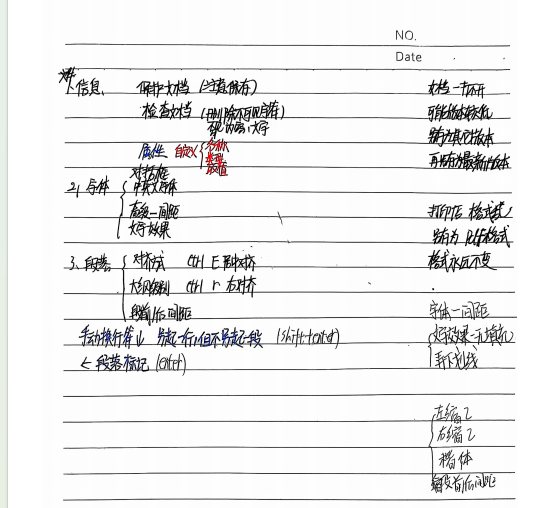 NO.
Date
1. 信息 保护文档 (注意保存)
检查文档 (删除不可见内容)
属性 自定义 { 名称
类型
取值
对话框
2, 字体 { 中英文字体
高级—间距
文字效果
3. 段落 { 对齐方式 ctrl E 居中对齐
大纲级别 ctrl r 右对齐
段前后间距
手动换行符↓ 另起一行但不另起一段 (shift+enter)
← 段落标记 (enter)
文档一打开
可能版本较低
另存为其他版本
再另存为最新版本
打印后 格式
另存为 PDF格式
格式永远不变
字体—间距
文字效果—无填充
下划线
左缩 2
右缩 2
楷体
段前后间距